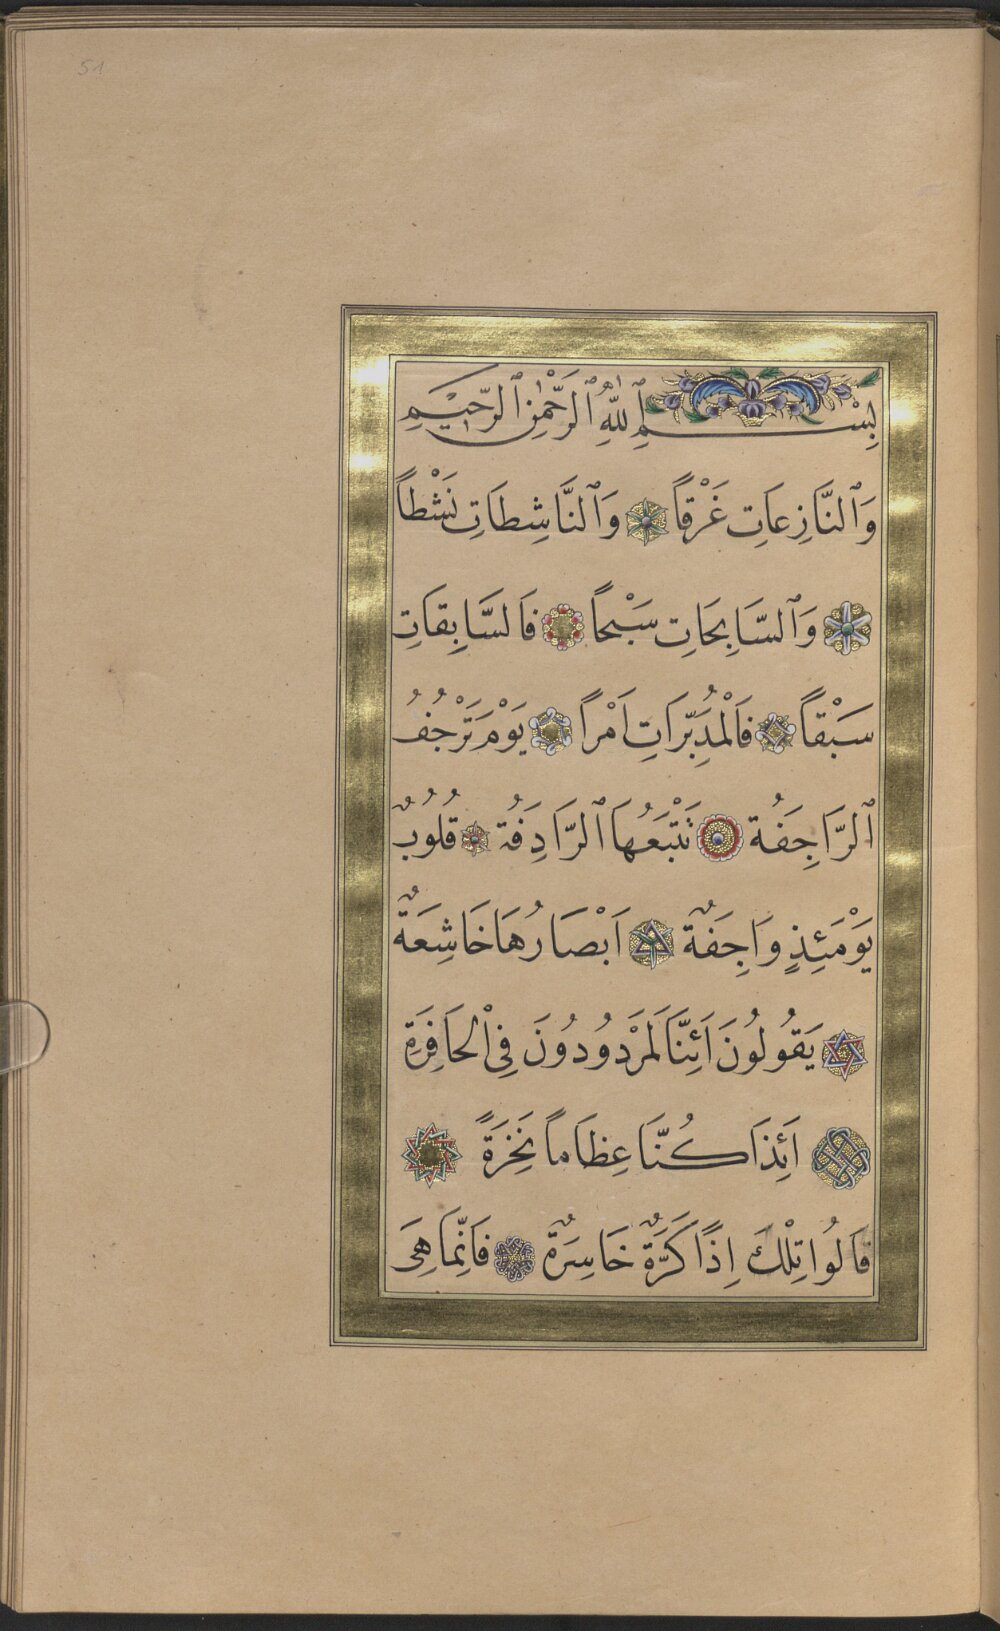 51
بِسْمِ ٱللّٰهِ ٱلرَّحْمٰنِ ٱلرَّحِيمِ
وَٱلنَّازِعَاتِ غَرْقاً وَٱلنَّاشِطَاتِ نَشْطاً
وَٱلسَّابِحَاتِ سَبْحاً فَالسَّابِقَاتِ
سَبْقاً فَالْمُدَبِّرَاتِ اَمْراً يَوْمَ تَرْجُفُ
ٱلرَّاجِفَةُ تَتْبَعُهَا ٱلرَّادِفَةُ قُلُوبٌ
يَوْمَئِذٍ وَاجِفَةٌ اَبْصَارُهَا خَاشِعَةٌ
يَقُولُونَ اَئِنَّا لَمَرْدُودُونَ فِى الْحَافِرَةِ
اَئِذَا كُنَّا عِظَاماً نَخِرَةً
قَالُوا تِلْكَ اِذًا كَرَّةٌ خَاسِرَةٌ فَاِنَّمَا هِىَ